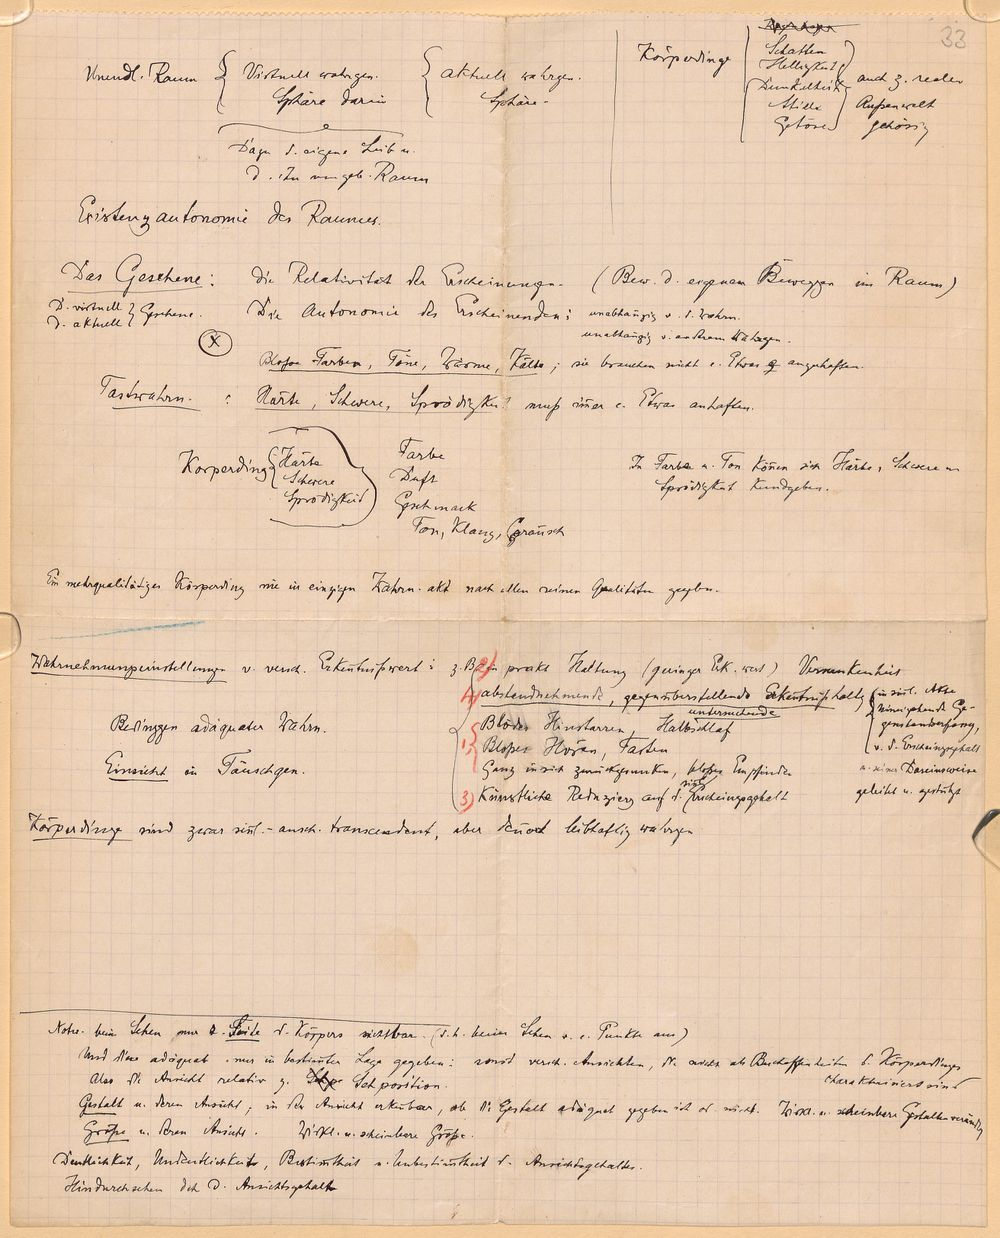 33
Unendl. Raum { Virtuell wahrgen. { aktuell wahrgen.
Sphäre darin Sphäre.
Körperdinge
Schatten
Helligkeit
Dunkelheit
Stille
Getöse
auch z. realen
Außenwelt
gehörig
Dazu d. eigene Leib u.
d. ihn umgeb. Raum
Existenzautonomie des Raumes.
Das Gesehene: die Relativität der Erscheinungen. (Bew. d. eigenen Beweggen im Raum)
D. virtuell
D. aktuell } Gesehene.
Die Autonomie des Erscheinenden: unabhängig v. d. Wahrn.
unabhängig v. anderem Wahrgen.
X
Blosse Farben, Töne, Wärme, Kälte; sie brauchen nicht e. Etwas anzuhaften.
Tastwahrn. : Härte, Schwere, Sprödigkeit muß immer e. Etwas anhaften.
Körperding { Härte
Schwere
Sprödigkeit
Farbe
Duft
Geschmack
Ton, Klang, Geräusch
In Farbe u. Ton können sich Härte, Schwere u.
Sprödigkeit kundgeben.
Ein mehrqualitätiges Körperding nie in einzigem Wahrn. akt nach allen seinen Qualitäten gegeben.
Wahrnehmungseinstellungen v. versch. Erkenntnißwert: z. B. 2) prakt Haltung (geringer Erk. wert) Versunkenheit
4) abstandnehmende, gegenüberstellende Erkenntnißhaltg
untersuchende
in sinl. Akte
hineingehende Ge-
genstandserfassg,
v. d. Erscheingsgehalt
u. seiner Daseinsweise
geleitet u. gestützt
Bedinggen adäquater Wahrn.
Einsicht in Täuschgen.
1) { Blödes Hinstarren, Halbschlaf
Bloßes Hören, Tasten
Ganz in sich zurückgesunken, bloßes Empfinden
3) Künstliche Reduzierg auf d. sinl. Erscheingsgehalt
Körperdinge sind zwar sinl.-ansch. transcendent, aber leibhaftig wahrgen
Notiz. beim Sehen nur e. Seite d. Körpers sichtbar. (d.h. beim Sehen v. e. Punkte aus)
Und diese adäquat nur in bestimmter Lage gegeben: sonst versch. Ansichten, die nicht als Beschaffenheiten d. Körperdinges
charakterisiert sind
Also die Ansicht relativ z. Sehposition.
Gestalt u. deren Ansicht; in der Ansicht erkennbar, ob die Gestalt adäquat gegeben ist od. nicht. Wirkl. u. scheinbare Gestaltsveränderg
Größe u. deren Ansicht. Wirkl. u. scheinbare Größe.
Deutlichkeit, Undeutlichkeit, Bestimtheit u. Unbestimtheit d. Ansichtsgehaltes.
Hindurchsehen d. Ansichtsgehalt